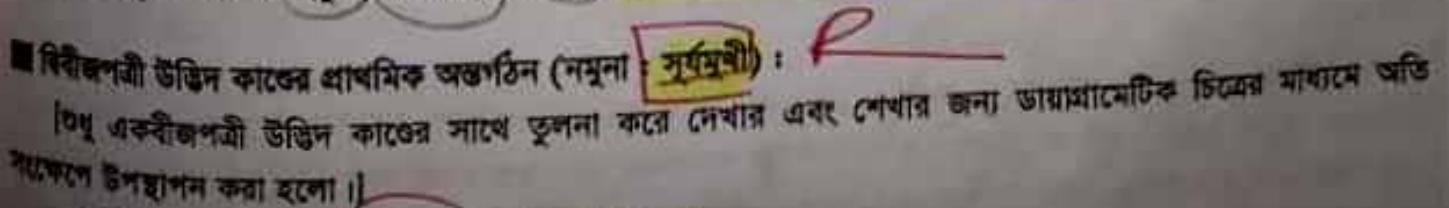 ■ দ্বিবীজপত্রী উদ্ভিদ কাণ্ডের প্রাথমিক অন্তর্গঠন (নমুনা : সূর্যমুখী) :
শুধু একবীজপত্রী উদ্ভিদ কাণ্ডের সাথে তুলনা করে দেখার এবং শেখার জন্য ডায়াগ্রামেটিক চিত্রের মাধ্যমে অতি
সংক্ষেপে উপস্থাপন করা হলো।